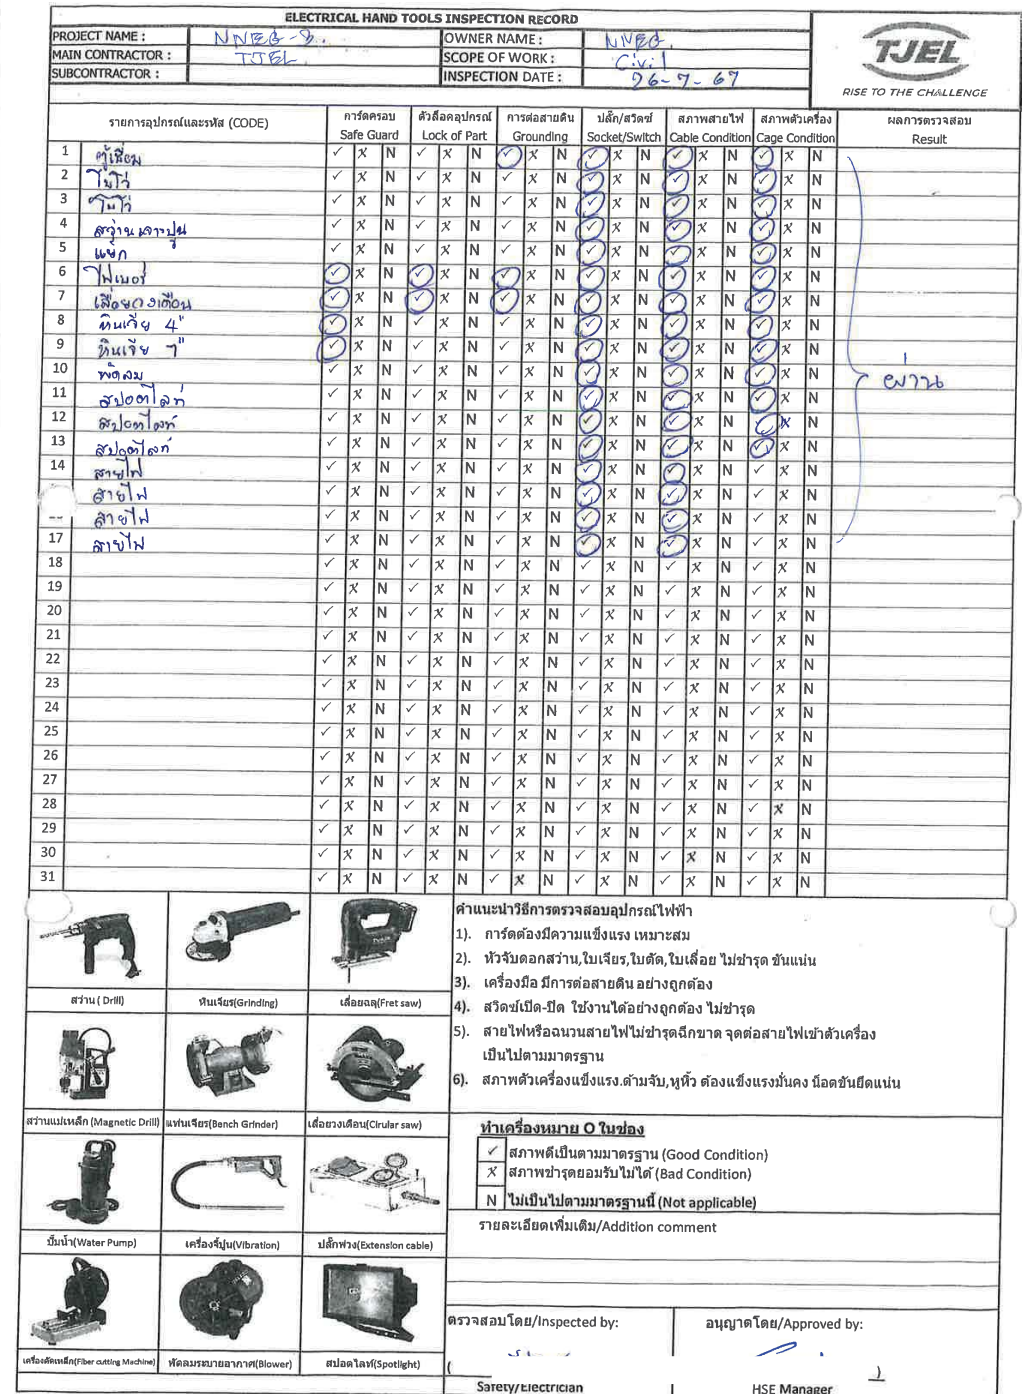 ELECTRICAL HAND TOOLS INSPECTION RECORD
PROJECT NAME : NNEG-3. OWNER NAME : NNEG.
MAIN CONTRACTOR : TJEL SCOPE OF WORK : Civil
SUBCONTRACTOR : INSPECTION DATE : 26-7-67
TJEL
RISE TO THE CHALLENGE
รายการอุปกรณ์และรหัส (CODE) การ์ดครอบ ตัวล็อคอุปกรณ์ การต่อสายดิน ปลั๊ก/สวิตซ์ สภาพสายไฟ สภาพตัวเครื่อง ผลการตรวจสอบ
Safe Guard Lock of Part Grounding Socket/Switch Cable Condition Cage Condition Result
1 ตู้เชื่อม ✓ X N ✓ X N ✓ X N ✓ X N ✓ X N ✓ X N
2 โบโว่ ✓ X N ✓ X N ✓ X N ✓ X N ✓ X N ✓ X N
3 โบโว่ ✓ X N ✓ X N ✓ X N ✓ X N ✓ X N ✓ X N
4 สว่านเจาะปูน ✓ X N ✓ X N ✓ X N ✓ X N ✓ X N ✓ X N
5 แย็ก ✓ X N ✓ X N ✓ X N ✓ X N ✓ X N ✓ X N
6 ไฟเบอร์ ✓ X N ✓ X N ✓ X N ✓ X N ✓ X N ✓ X N
7 เลื่อยวงเดือน ✓ X N ✓ X N ✓ X N ✓ X N ✓ X N ✓ X N
8 หินเจีย 4" ✓ X N ✓ X N ✓ X N ✓ X N ✓ X N ✓ X N
9 หินเจีย 7" ✓ X N ✓ X N ✓ X N ✓ X N ✓ X N ✓ X N
10 พัดลม ✓ X N ✓ X N ✓ X N ✓ X N ✓ X N ✓ X N ผ่าน
11 สปอตไลท์ ✓ X N ✓ X N ✓ X N ✓ X N ✓ X N ✓ X N
12 สปอตไลท์ ✓ X N ✓ X N ✓ X N ✓ X N ✓ X N ✓ X N
13 สปอตไลท์ ✓ X N ✓ X N ✓ X N ✓ X N ✓ X N ✓ X N
14 สายไฟ ✓ X N ✓ X N ✓ X N ✓ X N ✓ X N ✓ X N
สายไฟ ✓ X N ✓ X N ✓ X N ✓ X N ✓ X N ✓ X N
สายไฟ ✓ X N ✓ X N ✓ X N ✓ X N ✓ X N ✓ X N
17 สายไฟ ✓ X N ✓ X N ✓ X N ✓ X N ✓ X N ✓ X N
18 ✓ X N ✓ X N ✓ X N ✓ X N ✓ X N ✓ X N
19 ✓ X N ✓ X N ✓ X N ✓ X N ✓ X N ✓ X N
20 ✓ X N ✓ X N ✓ X N ✓ X N ✓ X N ✓ X N
21 ✓ X N ✓ X N ✓ X N ✓ X N ✓ X N ✓ X N
22 ✓ X N ✓ X N ✓ X N ✓ X N ✓ X N ✓ X N
23 ✓ X N ✓ X N ✓ X N ✓ X N ✓ X N ✓ X N
24 ✓ X N ✓ X N ✓ X N ✓ X N ✓ X N ✓ X N
25 ✓ X N ✓ X N ✓ X N ✓ X N ✓ X N ✓ X N
26 ✓ X N ✓ X N ✓ X N ✓ X N ✓ X N ✓ X N
27 ✓ X N ✓ X N ✓ X N ✓ X N ✓ X N ✓ X N
28 ✓ X N ✓ X N ✓ X N ✓ X N ✓ X N ✓ X N
29 ✓ X N ✓ X N ✓ X N ✓ X N ✓ X N ✓ X N
30 ✓ X N ✓ X N ✓ X N ✓ X N ✓ X N ✓ X N
31 ✓ X N ✓ X N ✓ X N ✓ X N ✓ X N ✓ X N
สว่าน ( Drill) หินเจียร(Grinding) เลื่อยฉลุ(Fret saw)
สว่านแม่เหล็ก (Magnetic Drill) แท่นเจียร(Bench Grinder) เลื่อยวงเดือน(Cirular saw)
ปั๊มน้ำ(Water Pump) เครื่องจี้ปูน(Vibration) ปลั๊กพ่วง(Extension cable)
เครื่องตัดเหล็ก(Fiber cutting Machine) พัดลมระบายอากาศ(Blower) สปอตไลท์(Spotlight)
คำแนะนำวิธีการตรวจสอบอุปกรณ์ไฟฟ้า
1). การ์ดต้องมีความแข็งแรง เหมาะสม
2). หัวจับดอกสว่าน,ใบเจียร,ใบตัด,ใบเลื่อย ไม่ชำรุด ขันแน่น
3). เครื่องมือ มีการต่อสายดิน อย่างถูกต้อง
4). สวิตซ์เปิด-ปิด ใช้งานได้อย่างถูกต้อง ไม่ชำรุด
5). สายไฟหรือฉนวนสายไฟไม่ชำรุดฉีกขาด จุดต่อสายไฟเข้าตัวเครื่อง
เป็นไปตามมาตรฐาน
6). สภาพตัวเครื่องแข็งแรง,ด้ามจับ,หูหิ้ว ต้องแข็งแรงมั่นคง น็อตขันยึดแน่น
ทำเครื่องหมาย O ในช่อง
✓ สภาพดีเป็นตามมาตรฐาน (Good Condition)
X สภาพชำรุดยอมรับไม่ได้ (Bad Condition)
N ไม่เป็นไปตามมาตรฐานนี้ (Not applicable)
รายละเอียดเพิ่มเติม/Addition comment
ตรวจสอบโดย/Inspected by: อนุญาตโดย/Approved by:
( )
Safety/Electrician HSE Manager